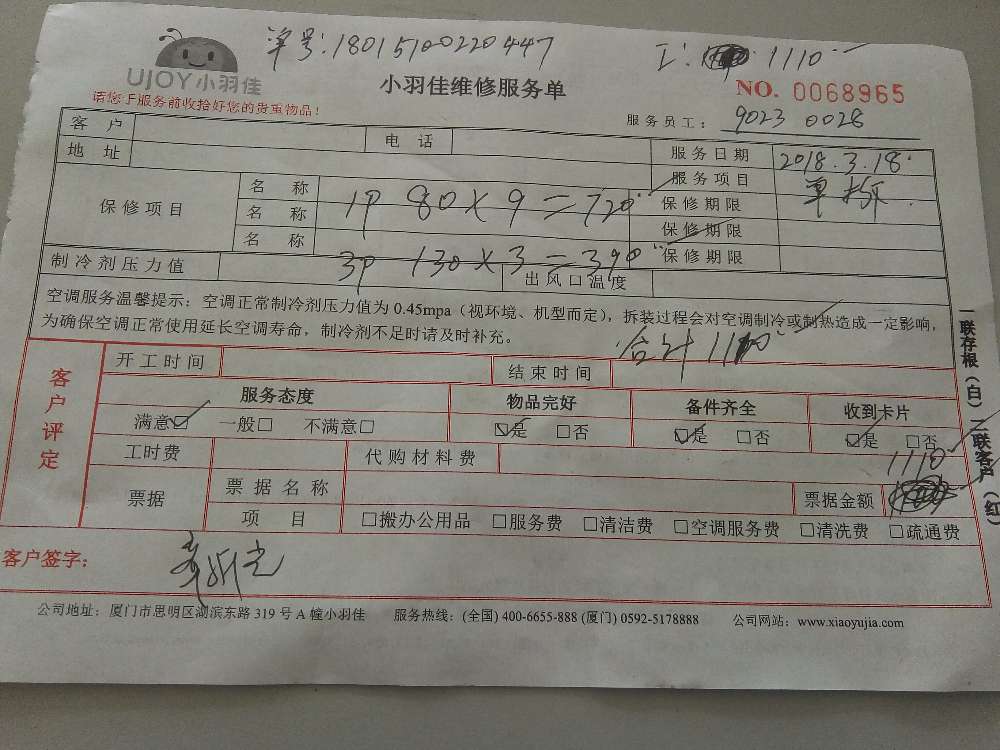 单号:1801510022 0447
工: 1110
UJOY小羽佳
小羽佳维修服务单
NO. 0068965
请您于服务前收拾好您的贵重物品！
服务员工： 9023 0028
客户 电话 服务日期 2018.3.18
地址 服务项目 单拆
保修项目 名称 1P 80×9=720 保修期限
名称 保修期限
名称 3P 130×3=390 保修期限
制冷剂压力值 出风口温度
空调服务温馨提示：空调正常制冷剂压力值为 0.45mpa（视环境、机型而定），拆装过程会对空调制冷或制热造成一定影响，
为确保空调正常使用延长空调寿命，制冷剂不足时请及时补充。
合计 1110
一联存根（白）二联客户（红）
客户评定
开工时间 结束时间
服务态度 物品完好 备件齐全 收到卡片
满意☑ 一般□ 不满意□ ☑是 □否 ☑是 □否 ☑是 □否
工时费 代购材料费 1110
票据 票据名称 票据金额
项目 □搬办公用品 □服务费 □清洁费 □空调服务费 □清洗费 □疏通费
客户签字：
公司地址：厦门市思明区湖滨东路 319 号 A 幢小羽佳 服务热线：(全国) 400-6655-888 (厦门) 0592-5178888 公司网站：www.xiaoyujia.com